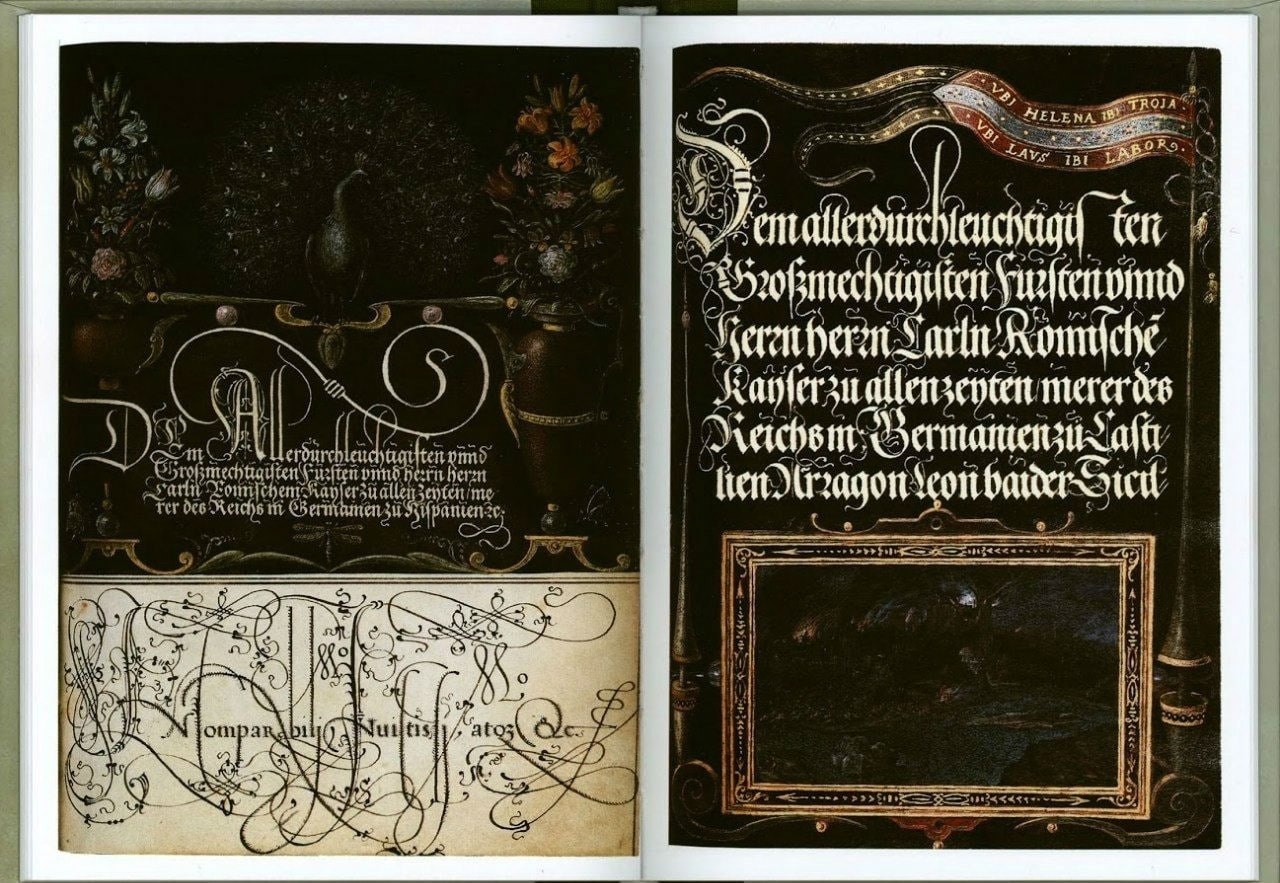 Dem Allerdurchleuchtigisten vnnd
Großmechtigisten Fürsten vnnd herrn herrn
Carln Romischem Kayser zu allen zeyten me
rer des Reichs in Germanien zu Hispanien ꝛc.
&c.
VBI HELENA IBI TROIA.
VBI LAVS IBI LABOR.
Dem allerdurchleuchtigisten
Großmechtigisten Fursten vnnd
Herrn herrn Carln Romischē
Kayser zu allen zeyten merer des
Reichs in Germanien zu Casti
lien Arragon Leon baider Sicil